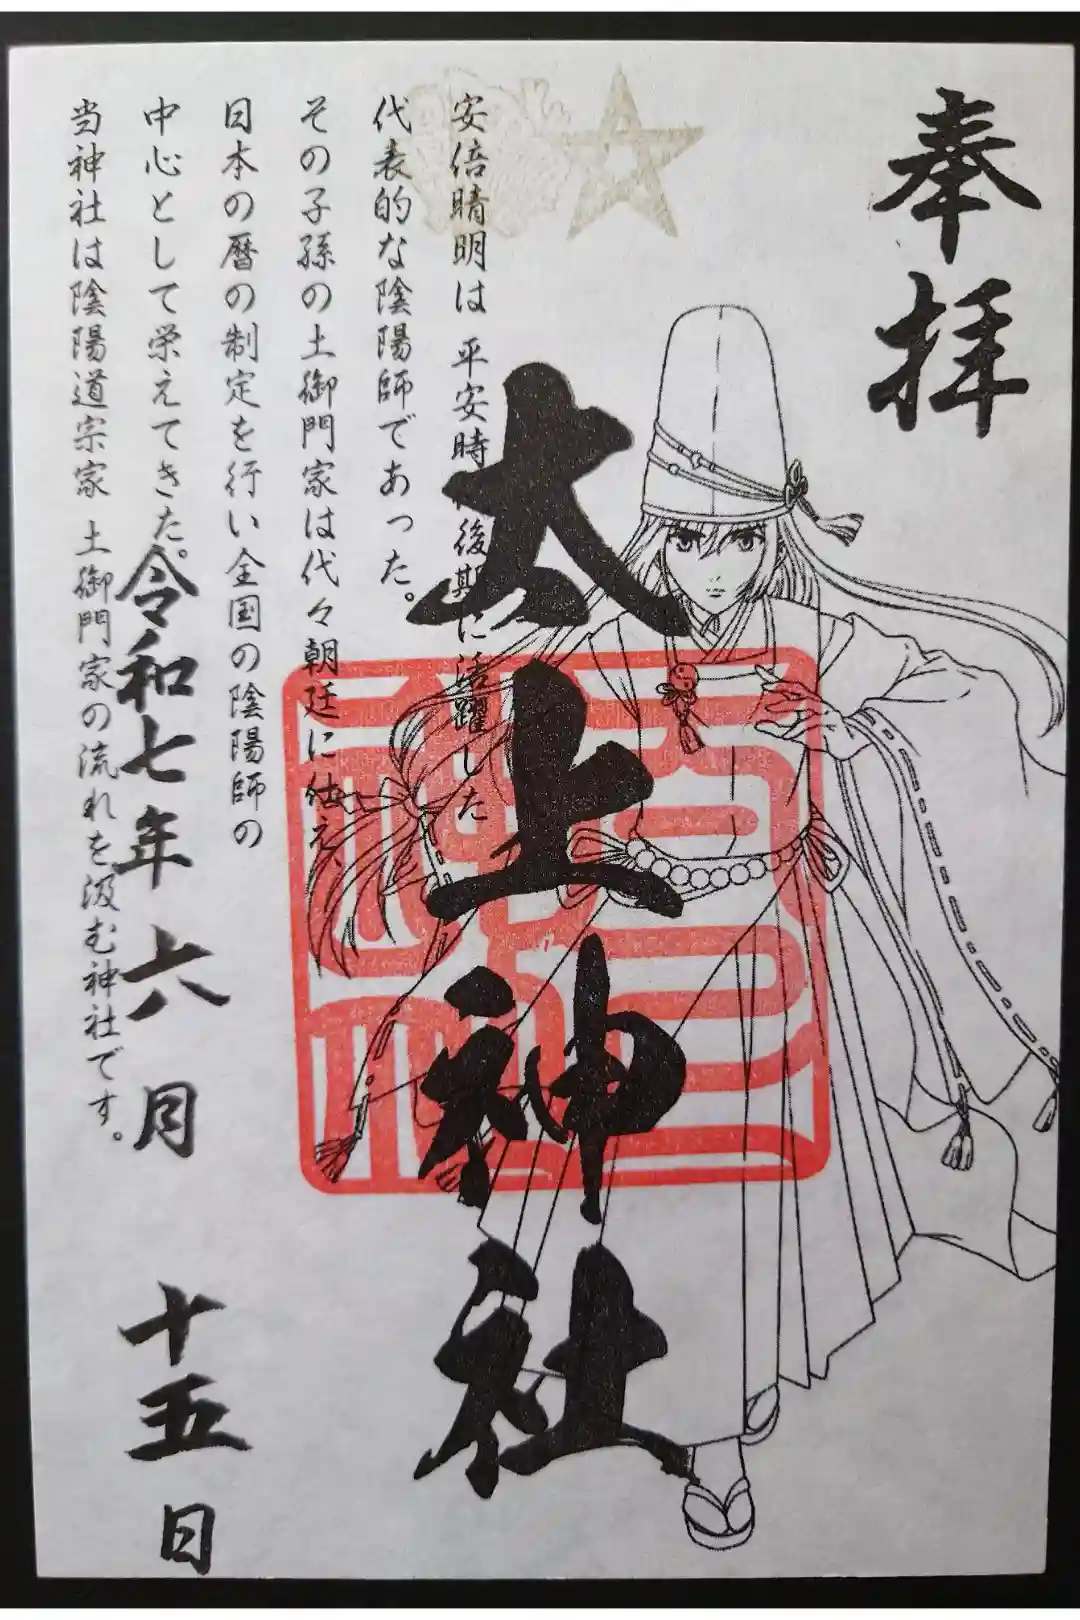 奉拝
太上神社
安倍晴明は 平安時 後期に活躍した
代表的な陰陽師であった。
その子孫の土御門家は代々朝廷に仕え、
日本の暦の制定を行い全国の陰陽師の
中心として栄えてきた。
当神社は陰陽道宗家 土御門家の流れを汲む神社です。
令和七年 六月 十五日